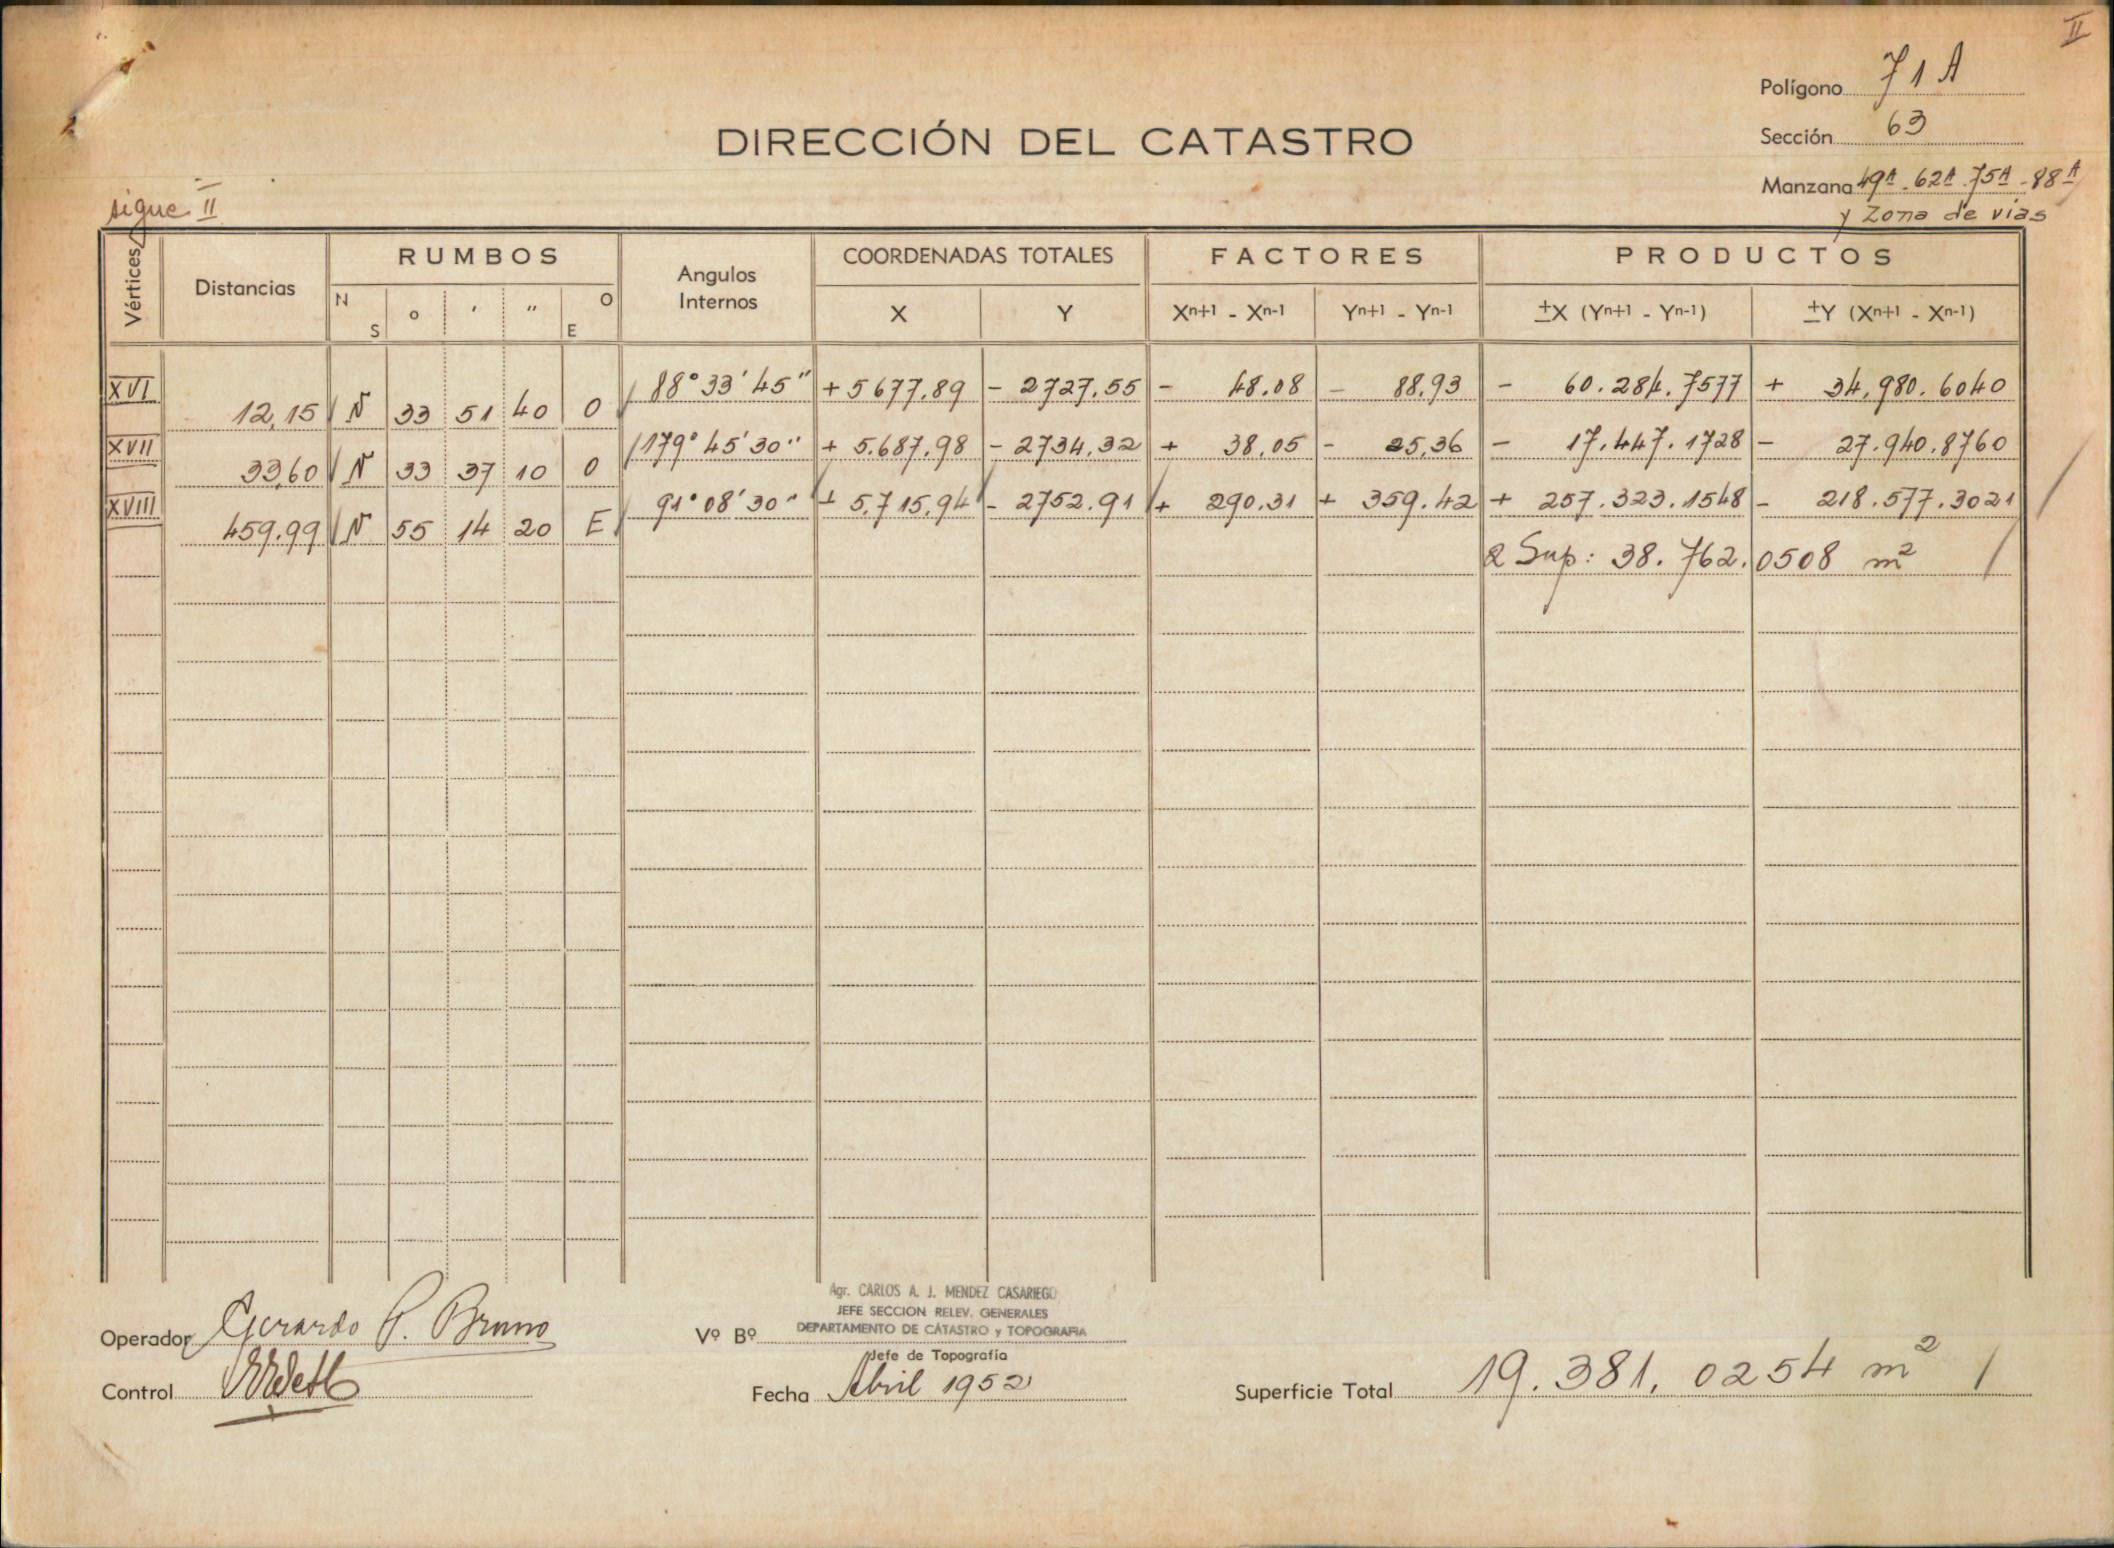 II
Polígono 71A
DIRECCIÓN DEL CATASTRO
Sección 63
Manzana 49A. 62A. 75A - 88A
y Zona de vias
sigue II
Vértices
Distancias
RUMBOS
Angulos Internos
COORDENADAS TOTALES
FACTORES
PRODUCTOS
N S o ′ ″ O E
X Y Xn+1 - Xn-1 Yn+1 - Yn-1 ±X (Yn+1 - Yn-1) ±Y (Xn+1 - Xn-1)
XVI 88° 33′ 45″ + 5677.89 - 2727.55 - 48.08 - 88.93 - 60.284.7577 + 34.980.6040
12,15 N 33 51 40 O
XVII 179° 45′ 30″ + 5.687,98 - 2734,32 + 38,05 - 25,36 - 17.447.1728 - 27.940.8760
33,60 N 33 37 10 O
XVIII 91° 08′ 30″ + 5.715,94 - 2752.91 + 290.31 + 359.42 + 257.323.1548 - 218.577.3021
459.99 N 55 14 20 E
2 Sup: 38.762.0508 m2
Agr. CARLOS A. J. MENDEZ CASARIEGO
JEFE SECCION RELEV. GENERALES
DEPARTAMENTO DE CATASTRO y TOPOGRAFIA
Operador Gerardo P. Bruno
Vº Bº
Jefe de Topografía
Control
Fecha Abril 1952
Superficie Total 19.381,0254 m2